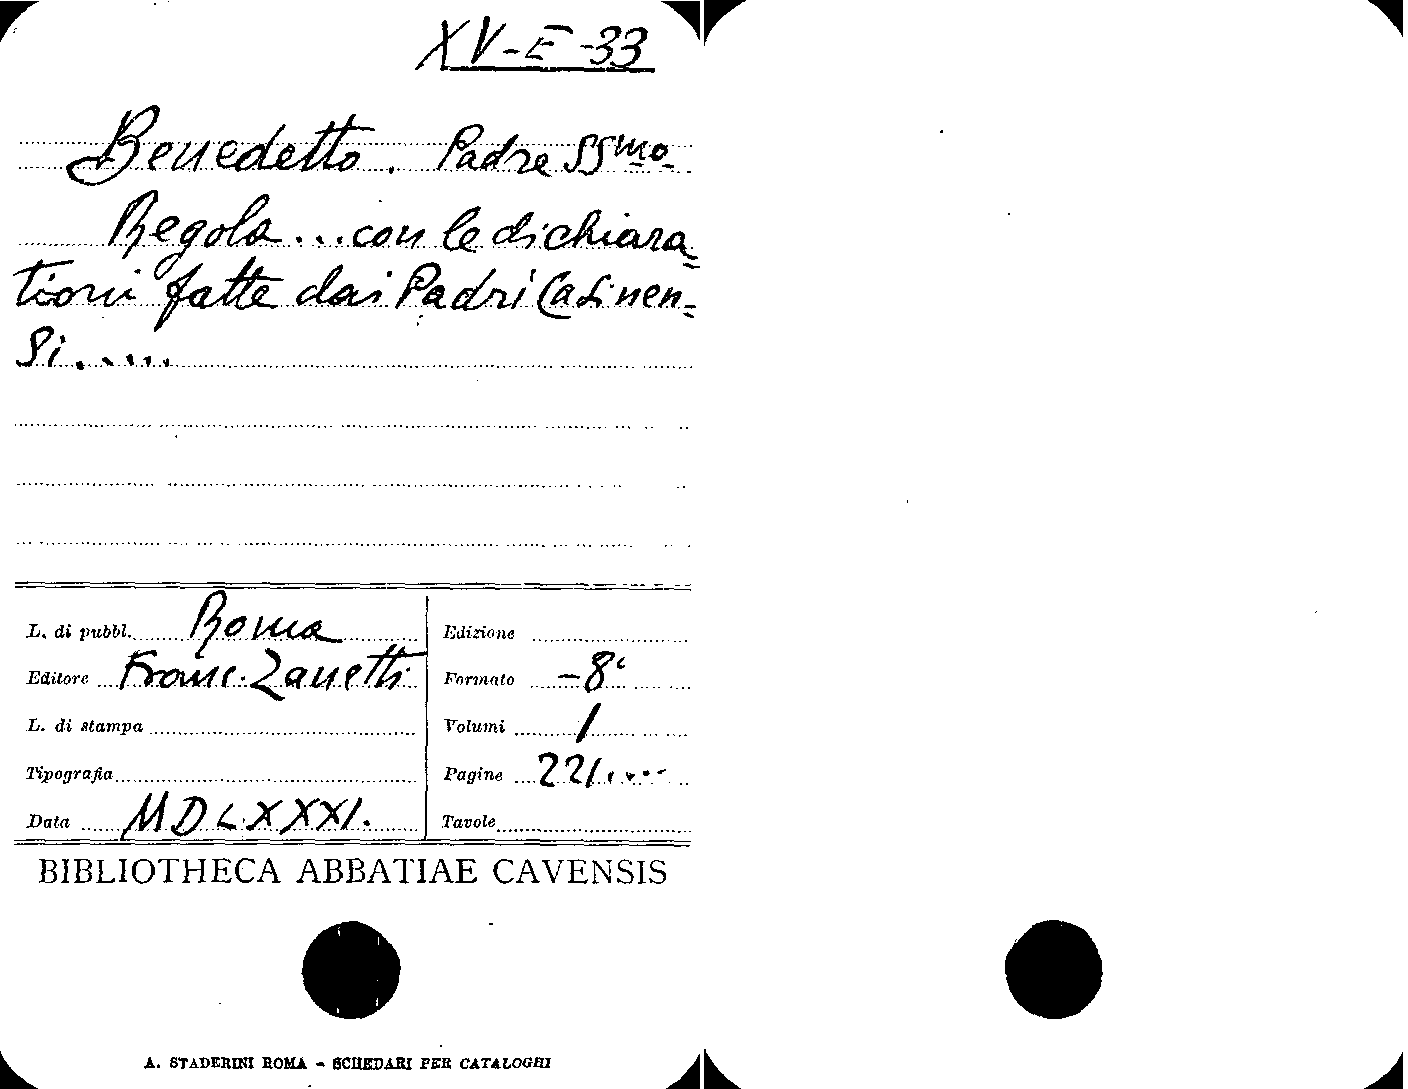 XV-E-33
Benedetto. Padre SSmo
Regola...con le dichiara=
tioni fatte dai Padri Casinen=
si.....
L. di pubbl. Roma
Editore Franc. Zanetti
L. di stampa
Tipografia
Data MDLXXXI.
Edizione
Formato -8°
Volumi 1
Pagine 221....
Tavole
BIBLIOTHECA ABBATIAE CAVENSIS
A. STADERINI ROMA - SCHEDARI PER CATALOGHI